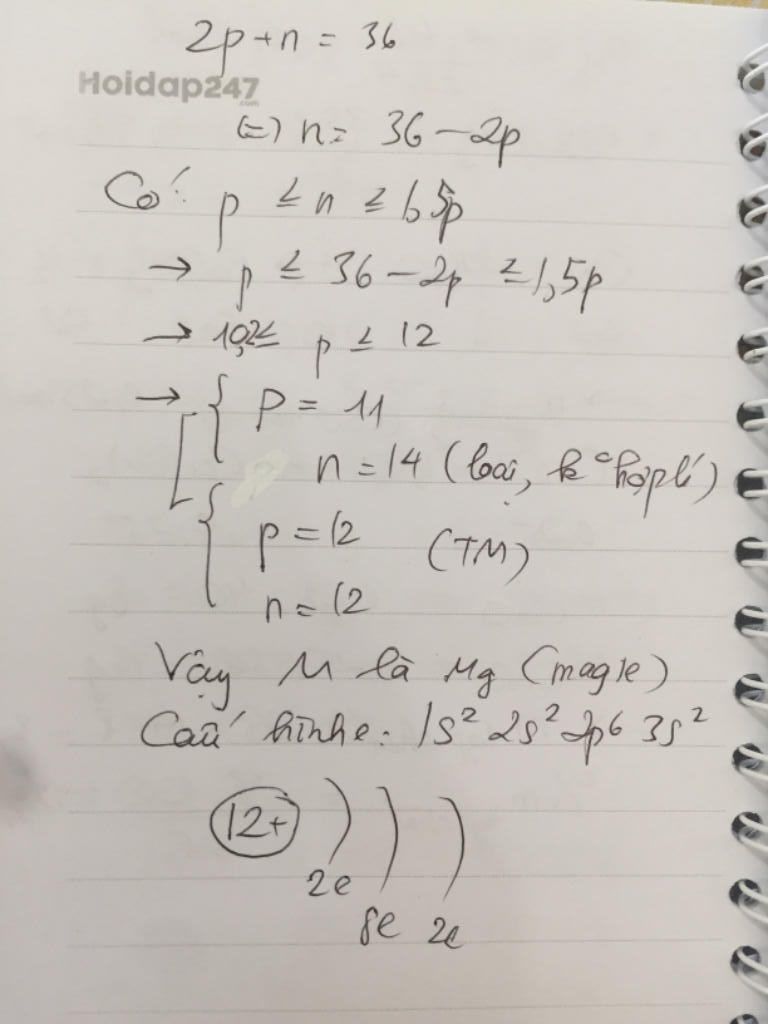 2p + n = 36
Hoidap247
.com
(=) n = 36 - 2p
Có: p ≤ n ≤ 1,5p
→ p ≤ 36 - 2p ≤ 1,5p
→ 10,2 ≤ p ≤ 12
→ { p = 11
n = 14 (loại, k c hợp lí)
{ p = 12 (TM)
n = 12
Vậy M là Mg (magie)
Cấu hình e: 1s² 2s² 2p⁶ 3s²
12+
2e
8e 2e